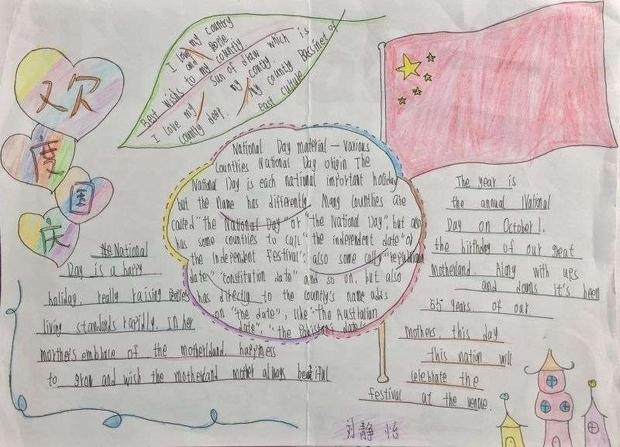 欢
度
国
庆
I love my country
and
to my country
Best wishes
sun of draw which is
I love my country
country deep.
my country
east culture
National Day material - Various
Countries National Day origin The
National Day is each national important holiday
but the name has differently. Many countries are
called "the National Day" or "the National Day", but also
has some countries to call "the independent date" or
the independent festival", also some call "republican
date" "constitution date" and so on, but also
has directly to the country's name adds
on "the date", like "the Australian
date", "the Pakistani date"
National
Day is a happy
holiday, really raising
living standards rapidly, in her
mother's embrace of the motherland happiness
to grow and wish the motherland mother always beautiful
The year is
the annual National
Day on October 1.
the birthday of our great
motherland. Along with ups
and downs it's been
65 years of our
mothers this day
this nation will
celebrate the
festival at the venue.
刘静怡